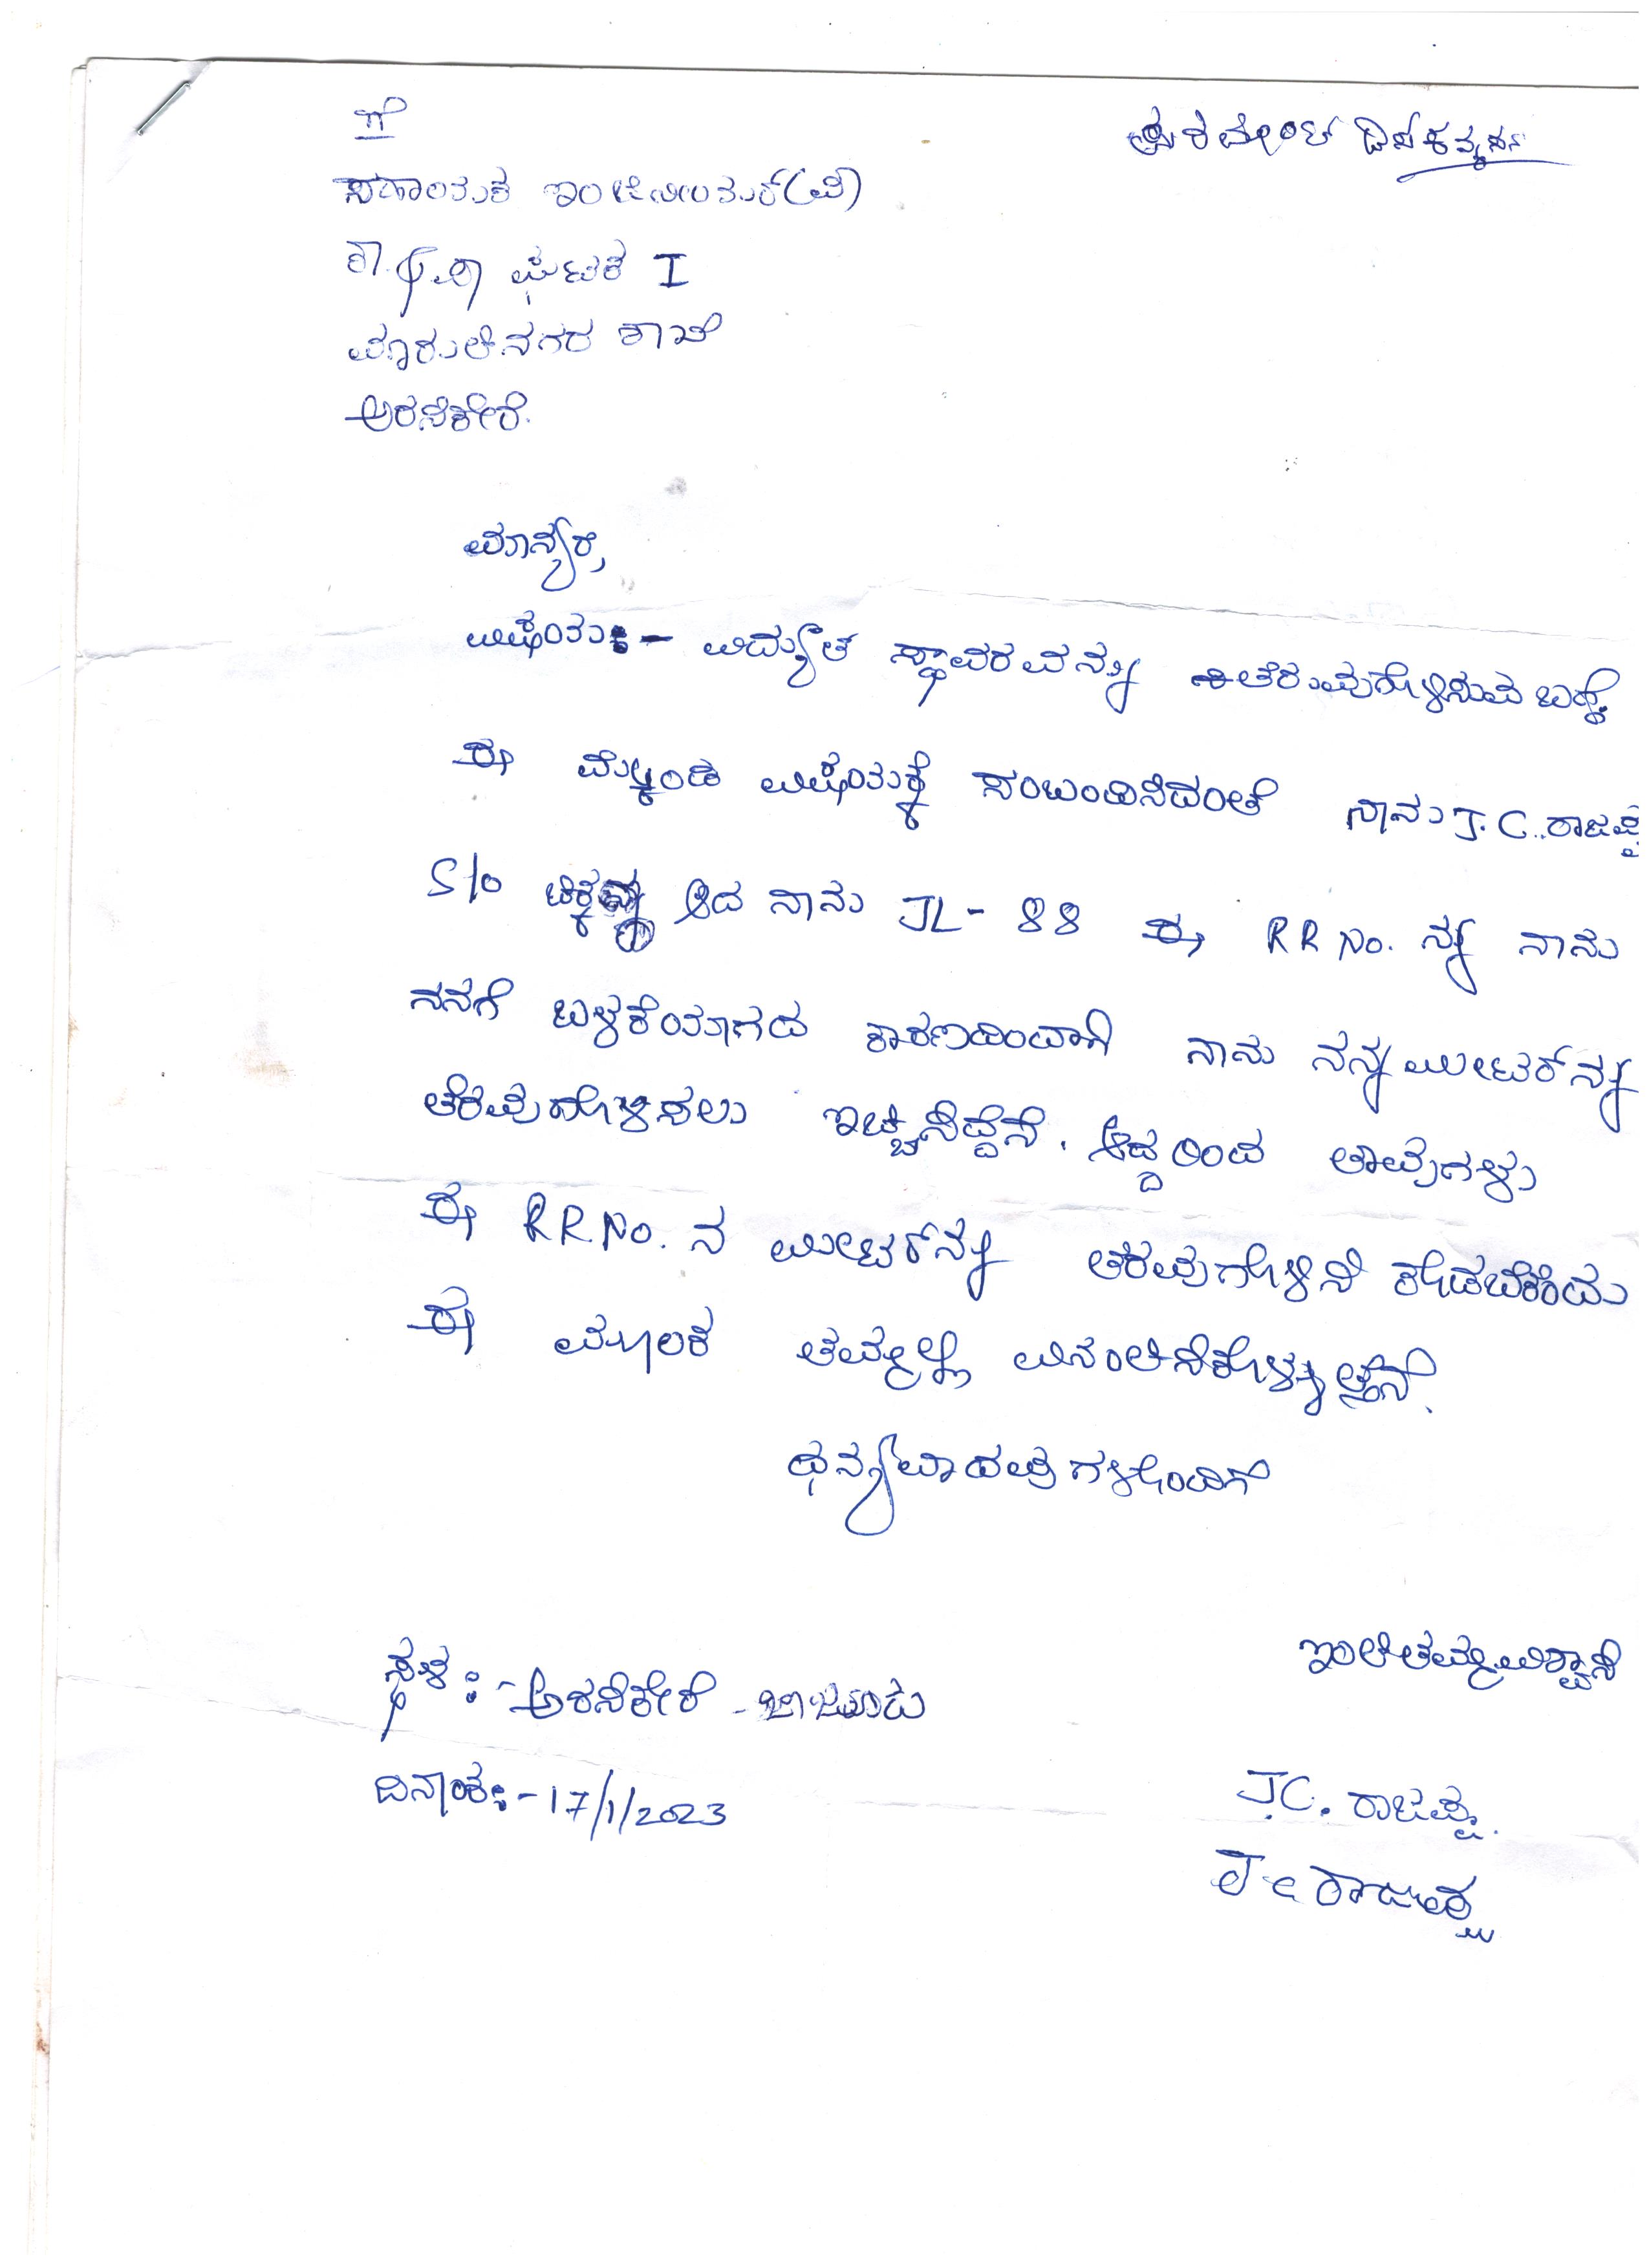 ಗೆ
ಸಹಾಯಕ ಇಂಜಿನೀಯರ್(ವಿ)
ಕಾ.ಪಾ ಘಟಕ I
ಮಾರುತಿನಗರ ಶಾಖೆ
ಅರಸೀಕೇರೆ.
ಮಾನ್ಯರೆ,
ವಿಷಯ:- ವಿದ್ಯುತ ಸ್ಥಾವರವನ್ನು ತೆರುವುಗೊಳಿಸುವ ಬಗ್ಗೆ
ಈ ಮೇಲ್ಕಂಡ ವಿಷಯಕ್ಕೆ ಸಂಬಂಧಿಸಿದಂತೆ ನಾನು J.C. ರಾಜಪ್ಪ
S/o ಆದ ನಾನು JL- 88 ಈ RR No. ನ್ನು ನಾನು
ನನಗೆ ಬಳಕೆಯಾಗದ ಕಾರಣದಿಂದಾಗಿ ನಾನು ನನ್ನ ಮೀಟರ್‌ನ್ನು
ತೆರವುಗೊಳಿಸಲು ಇಚ್ಚಸಿದ್ದೆನೆ. ಆದ್ದರಿಂದ ತಾವುಗಳು
ಈ R.R.No. ನ ಮೀಟರ್‌ನ್ನು ತೆರವುಗೊಳಿಸಿ ಕೊಡಬೇಕೆಂದು
ಈ ಮೂಲಕ ತಮ್ಮಲ್ಲಿ ವಿನಂತಿಸಿಕೊಳ್ಳುತ್ತೆನೆ.
ಧನ್ಯವಾದವುಗಳೊಂದಿಗೆ
ಇಂತಿ ತಮ್ಮ ವಿಶ್ವಾಸಿ
ಸ್ಥಳ:- ಅರಸಿಕೇರೆ
ದಿನಾಂಕ:- 17/1/2023
J.C. ರಾಜಪ್ಪ.
J C ರಾಜಪ್ಪ